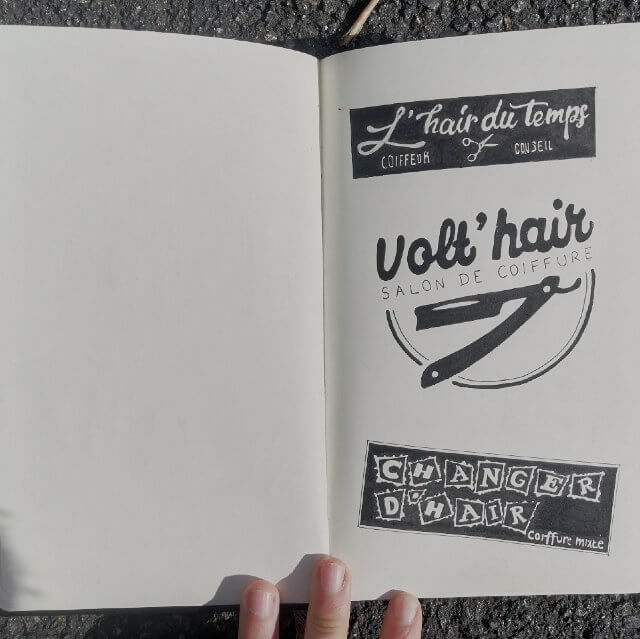 L'hair du temps
COIFFEUR CONSEIL
Volt'hair
SALON DE COIFFURE
CHANGER
D'HAIR
coiffure mixte